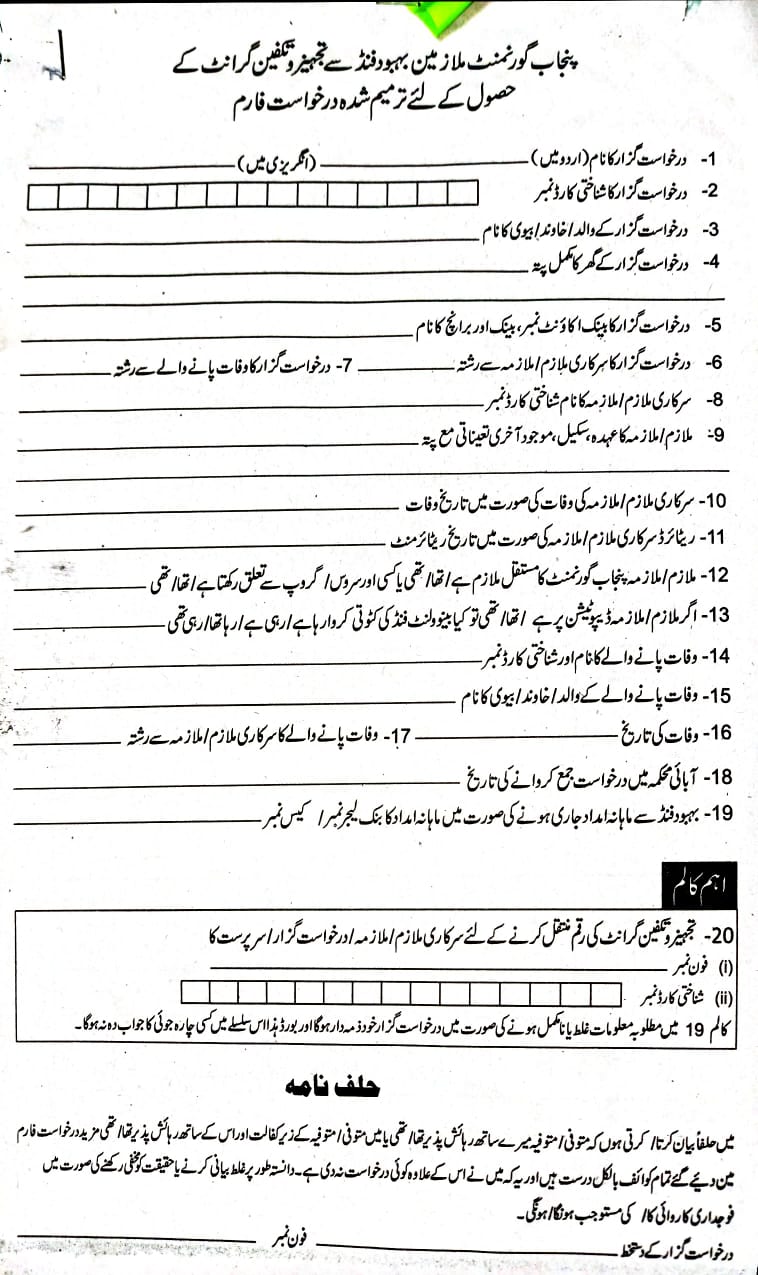 پنجاب گورنمنٹ ملازمین بہبود فنڈ سے تجہیز و تکفین گرانٹ کے
حصول کے لئے ترمیم شدہ درخواست فارم
1- درخواست گزار کا نام (اردو میں) (انگریزی میں)
2- درخواست گزار کا شناختی کارڈ نمبر
3- درخواست گزار کے والد/خاوند/بیوی کا نام
4- درخواست گزار کے گھر کا مکمل پتہ
5- درخواست گزار کا بینک اکاؤنٹ نمبر، بینک اور برانچ کا نام
6- درخواست گزار کا سرکاری ملازم/ملازمہ سے رشتہ 7- درخواست گزار کا وفات پانے والے سے رشتہ
8- سرکاری ملازم/ملازمہ کا نام شناختی کارڈ نمبر
9- ملازم/ملازمہ کا عہدہ، سکیل، موجود آخری تعیناتی مع پتہ
10- سرکاری ملازم/ملازمہ کی وفات کی صورت میں تاریخ وفات
11- ریٹائرڈ سرکاری ملازم/ملازمہ کی صورت میں تاریخ ریٹائرمنٹ
12- ملازم/ملازمہ پنجاب گورنمنٹ کا مستقل ملازم ہے/تھا/تھی یا کسی اور سروس/گروپ سے تعلق رکھتا ہے/تھا/تھی
13- اگر ملازم/ملازمہ ڈیپوٹیشن پر ہے /تھا/تھی تو کیا بینوولنٹ فنڈ کی کٹوتی کروا رہا ہے/رہی ہے/رہا تھا/رہی تھی
14- وفات پانے والے کا نام اور شناختی کارڈ نمبر
15- وفات پانے والے کے والد/خاوند/بیوی کا نام
16- وفات کی تاریخ 17- وفات پانے والے کا سرکاری ملازم/ملازمہ سے رشتہ
18- آبائی محکمہ میں درخواست جمع کروانے کی تاریخ
19- بہبود فنڈ سے ماہانہ امداد جاری ہونے کی صورت میں ماہانہ امداد کا بنک لیجر نمبر/ کیس نمبر
اہم کالم
20- تجہیز و تکفین گرانٹ کی رقم منتقل کرنے کے لئے سرکاری ملازم/ملازمہ/درخواست گزار/سرپرست کا
(i) فون نمبر
(ii) شناختی کارڈ نمبر
کالم 19 میں مطلوبہ معلومات غلط یا نامکمل ہونے کی صورت میں درخواست گزار خود ذمہ دار ہوگا اور بورڈ ہذا اس سلسلے میں کسی چارہ جوئی کا جواب دہ نہ ہوگا۔
حلف نامہ
میں حلفاً بیان کرتا/ کرتی ہوں کہ متوفی/متوفیہ میرے ساتھ رہائش پذیر تھا/تھی یا میں متوفی/متوفیہ کے زیر کفالت اور اس کے ساتھ رہائش پذیر تھا/تھی مزید درخواست فارم
مین دیئے گئے تمام کوائف بالکل درست ہیں اور یہ کہ میں نے اس کے علاوہ کوئی درخواست نہ دی ہے۔ دانستہ طور پر غلط بیانی کرنے یا حقیقت کو مخفی رکھنے کی صورت میں
فوجداری کاروائی کا/ کی مستوجب ہونگا/ہونگی۔
درخواست گزار کے دستخط فون نمبر